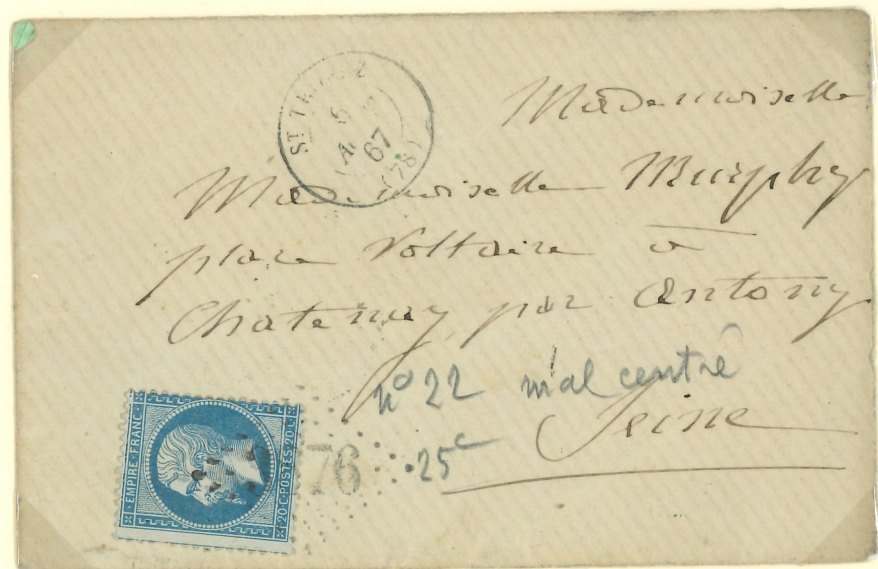 5
67
(78)
Mademoiselle
Mademoiselle Murphy
place Voltaire à
Chatenay par Antony
nº 22 mal centré
Seine
25c
76
EMPIRE·FRANC·
20C·POSTES·20C